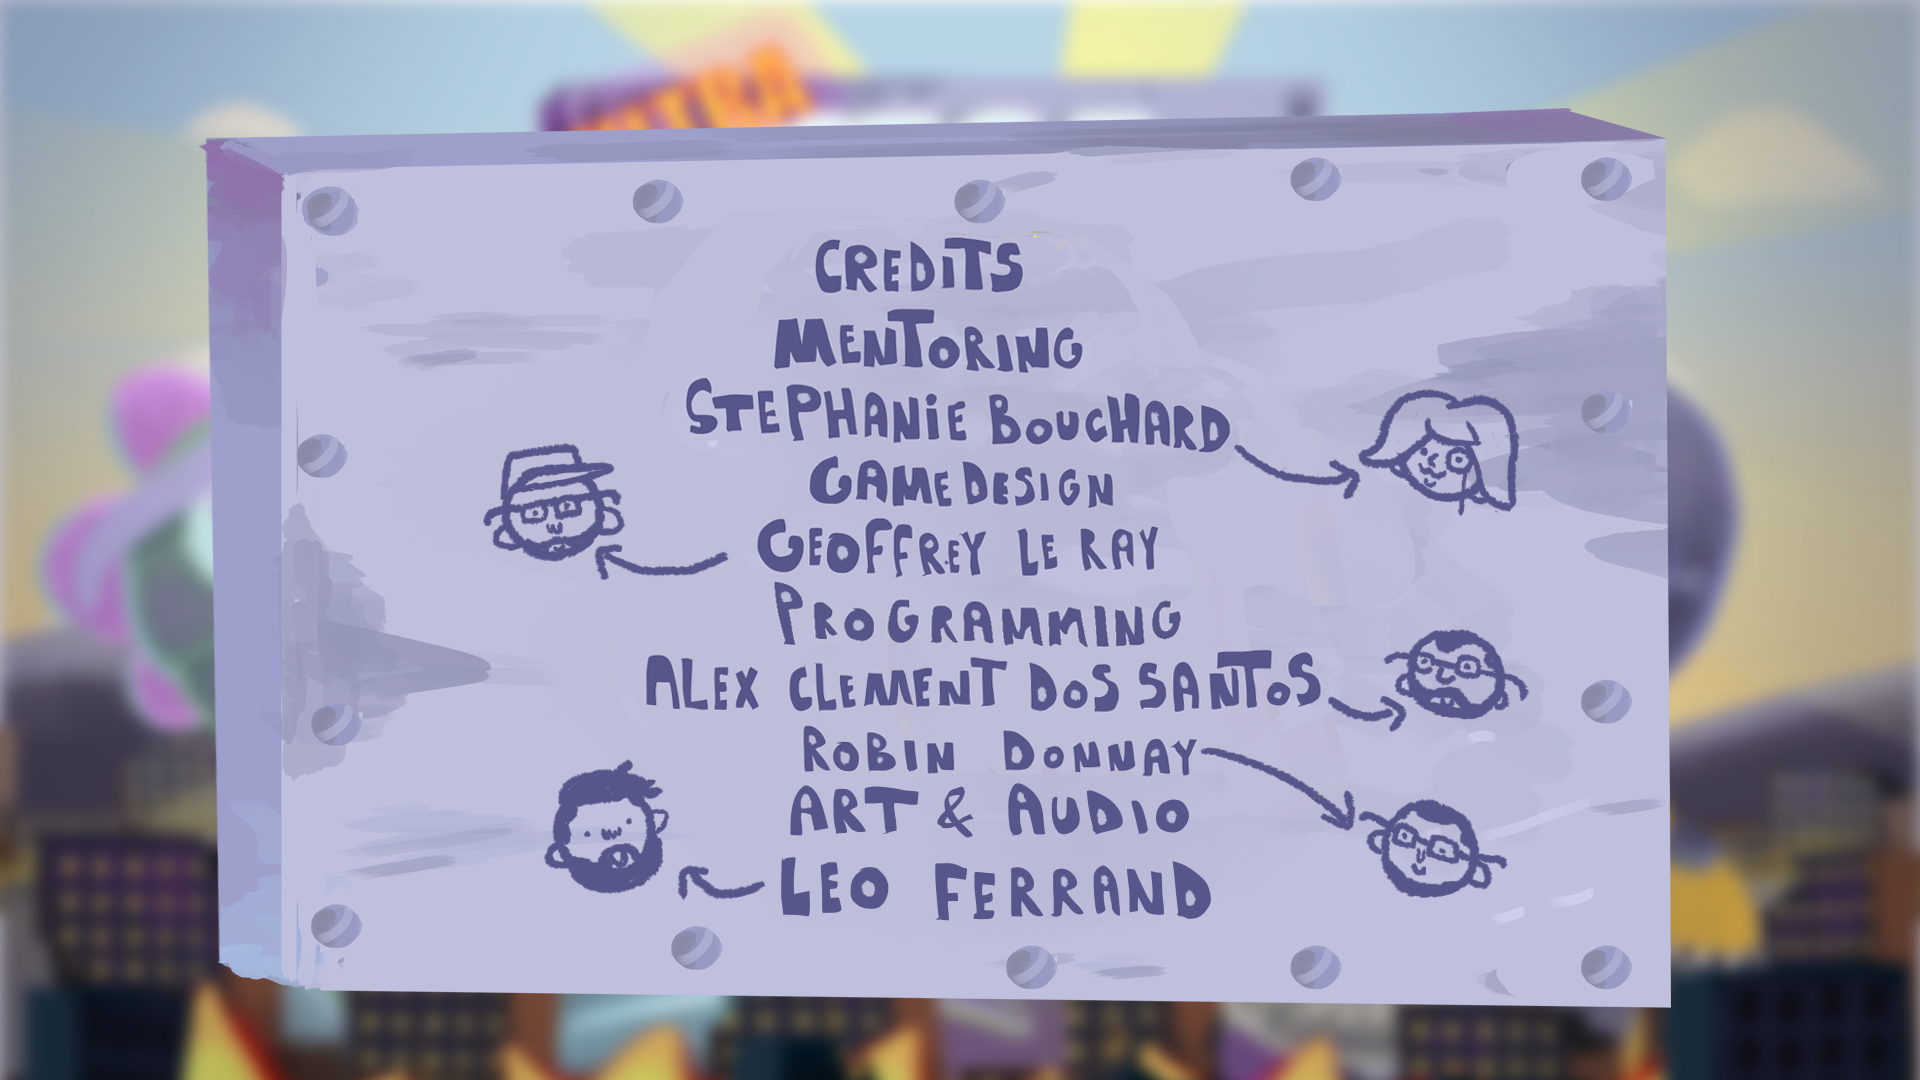 CREDiTS
MENTORING
STEPHANiE BOUCHARD
GAMEDESIGN
GEOFFREY LE RAY
PROGRAMMING
ALEX CLEMENT DOS SANTOS
ROBIN DONNAY
ART & AUDIO
LEO FERRAND